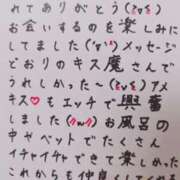 れてありがとう(≧▽≦)
お会いするのを楽しみに
してました('▽')メッセージ
どおりのキス魔さんで
うれしかった〜(≧▽≦)アメ
キス♥もエッチで興奮
しました(〃ω〃)お風呂の
中やベットでたくさん
イチャイチャできて楽しかった
これからも仲良くしてくれる